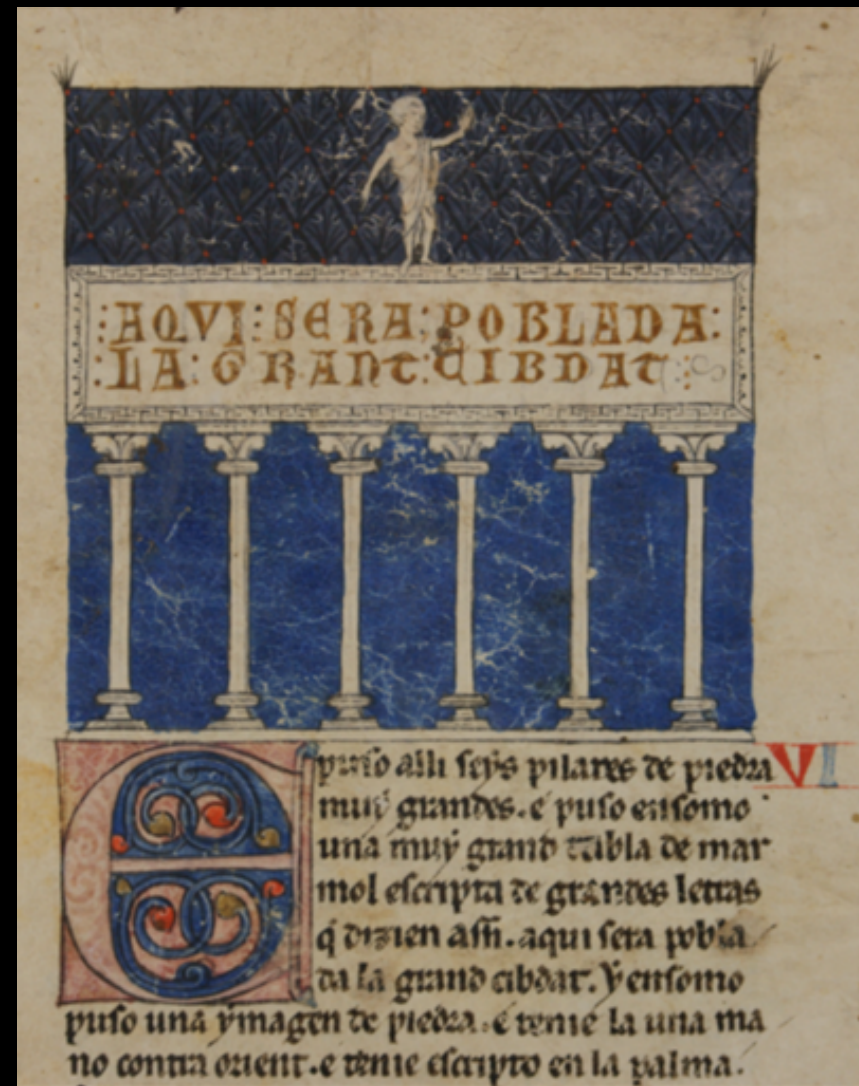 :AQVI:SERA:POBLADA:
:LA:GRANT:CIBDAT:
E puso alli seys pilares de piedra VI
muy grandes. e puso ensomo
una muy grand tabla de mar
mol escripta de grandes letras
q̄ dizien assi. aqui sera pobla
da la grand cibdat. Y ensomo
puso una ymagen de piedra. e tenie la una ma
no contra orient. e tenie escripto en la palma.